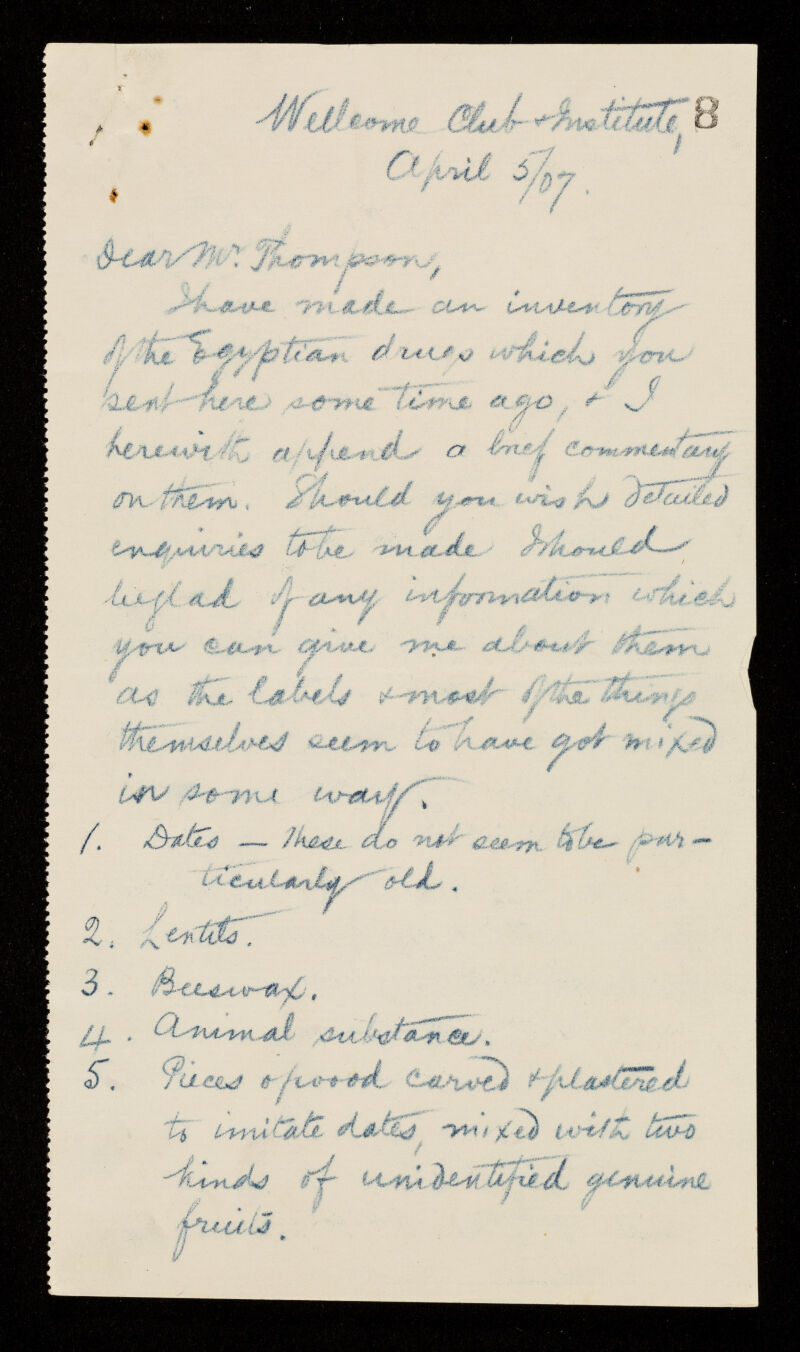 Wellcome Club & Institute, 8
April 5/07.
Dear Mr. Thompson,
I have made an inventory
of the Egyptian drugs which you
sent here some time ago, & I
herewith append a brief commentary
on them. Should you wish detailed
enquiries to be made I should
be glad of any information which
you can give me about them
as the labels & most of the things
themselves seem to have got mixed
in some way.
1. Dates — These do not seem to be par-
ticularly old.
2. Lentils.
3. Beeswax.
4. Animal substance.
5. Pieces of wood carved & plastered
to imitate dates, mixed with two
kinds of unidentified genuine
fruits.